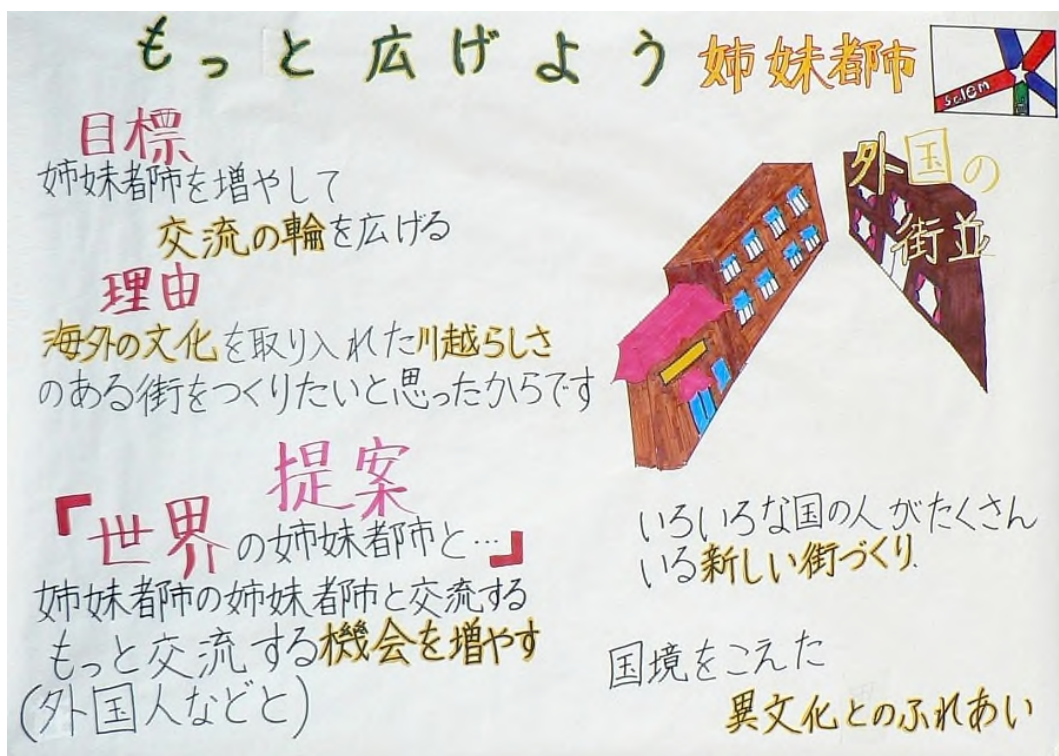 もっと広げよう姉妹都市
salem
目標
姉妹都市を増やして
交流の輪を広げる
理由
海外の文化を取り入れた川越らしさ
のある街をつくりたいと思ったからです
提案
「世界の姉妹都市と…」
姉妹都市の姉妹都市と交流する
もっと交流する機会を増やす
(外国人などと)
外国の
街並
いろいろな国の人がたくさん
いる新しい街づくり.
国境をこえた
異文化とのふれあい